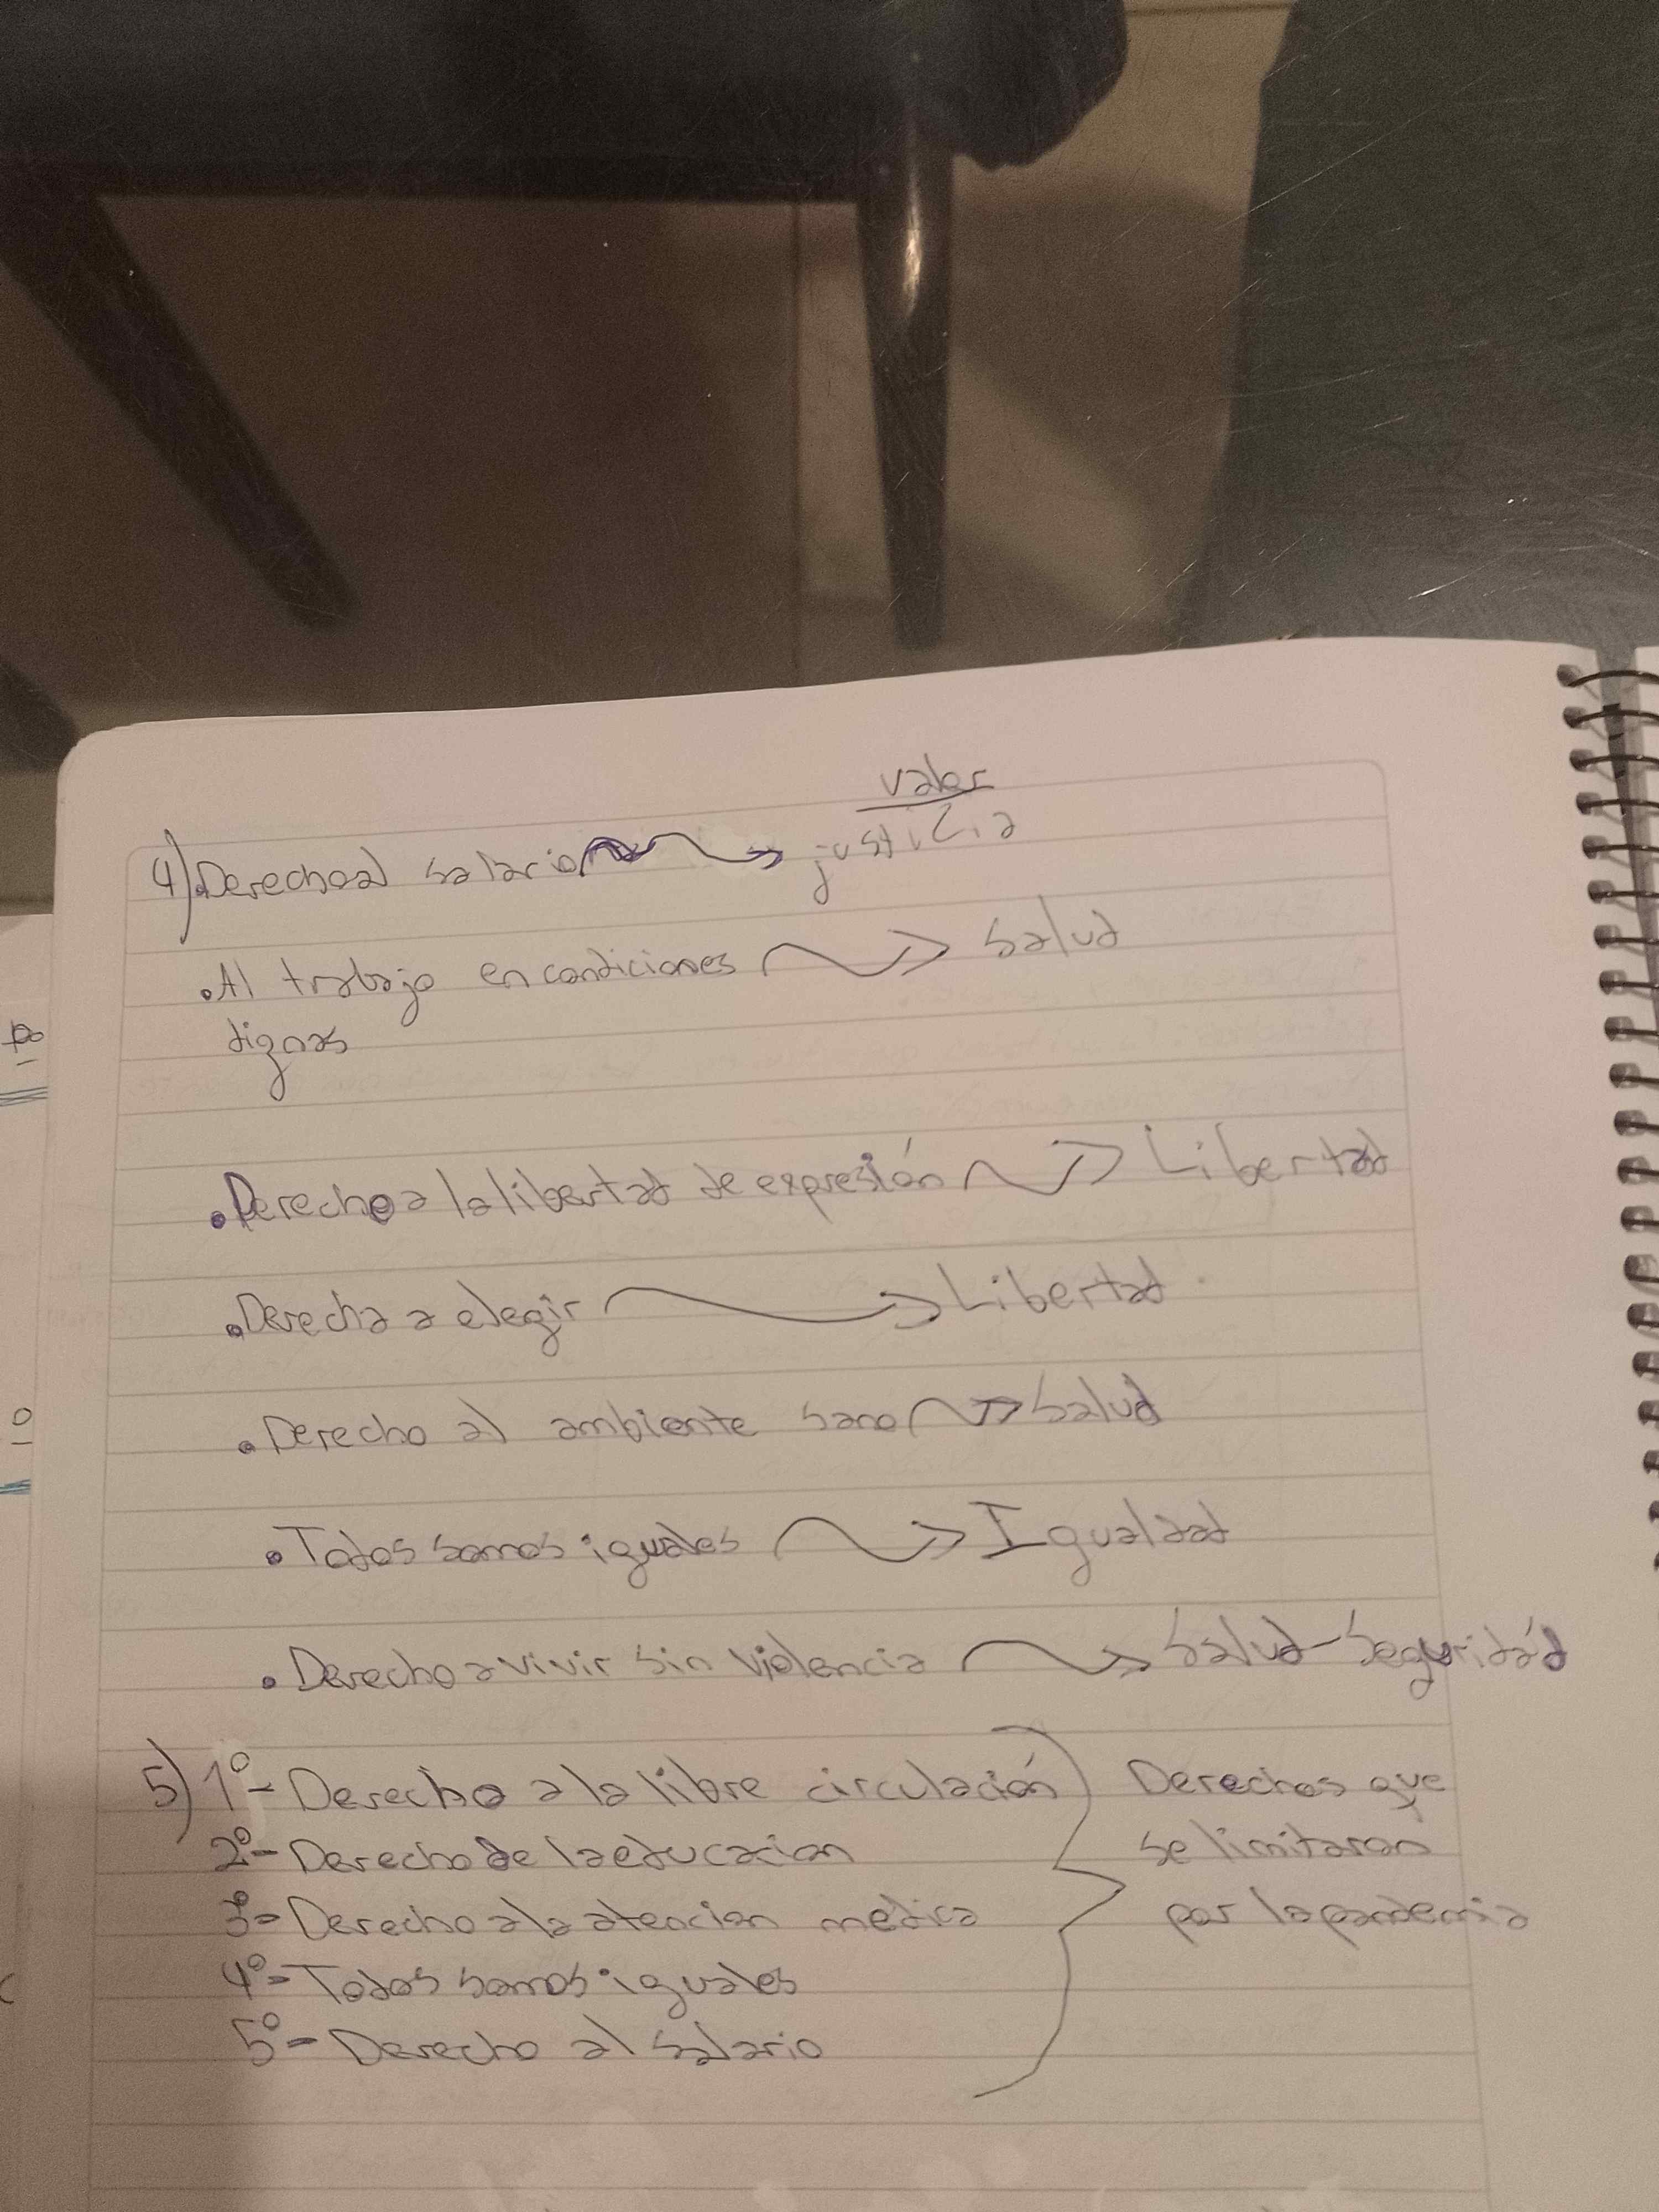 valor
4) • Derecho al salario → justicia
• Al trabajo en condiciones → Salud
dignas
• Derecho a la libertad de expresión → Libertad
• Derecho a elegir → Libertad
• Derecho al ambiente sano → Salud
• Todos somos iguales → Igualdad
• Derecho a vivir sin violencia → Salud-Seguridad
5) 1º- Derecho a la libre circulación } Derechos que
2º- Derecho de la educacion se limitaron
3º- Derecho a la atencion medica por la pandemia
4º- Todos somos iguales
5º- Derecho al salario